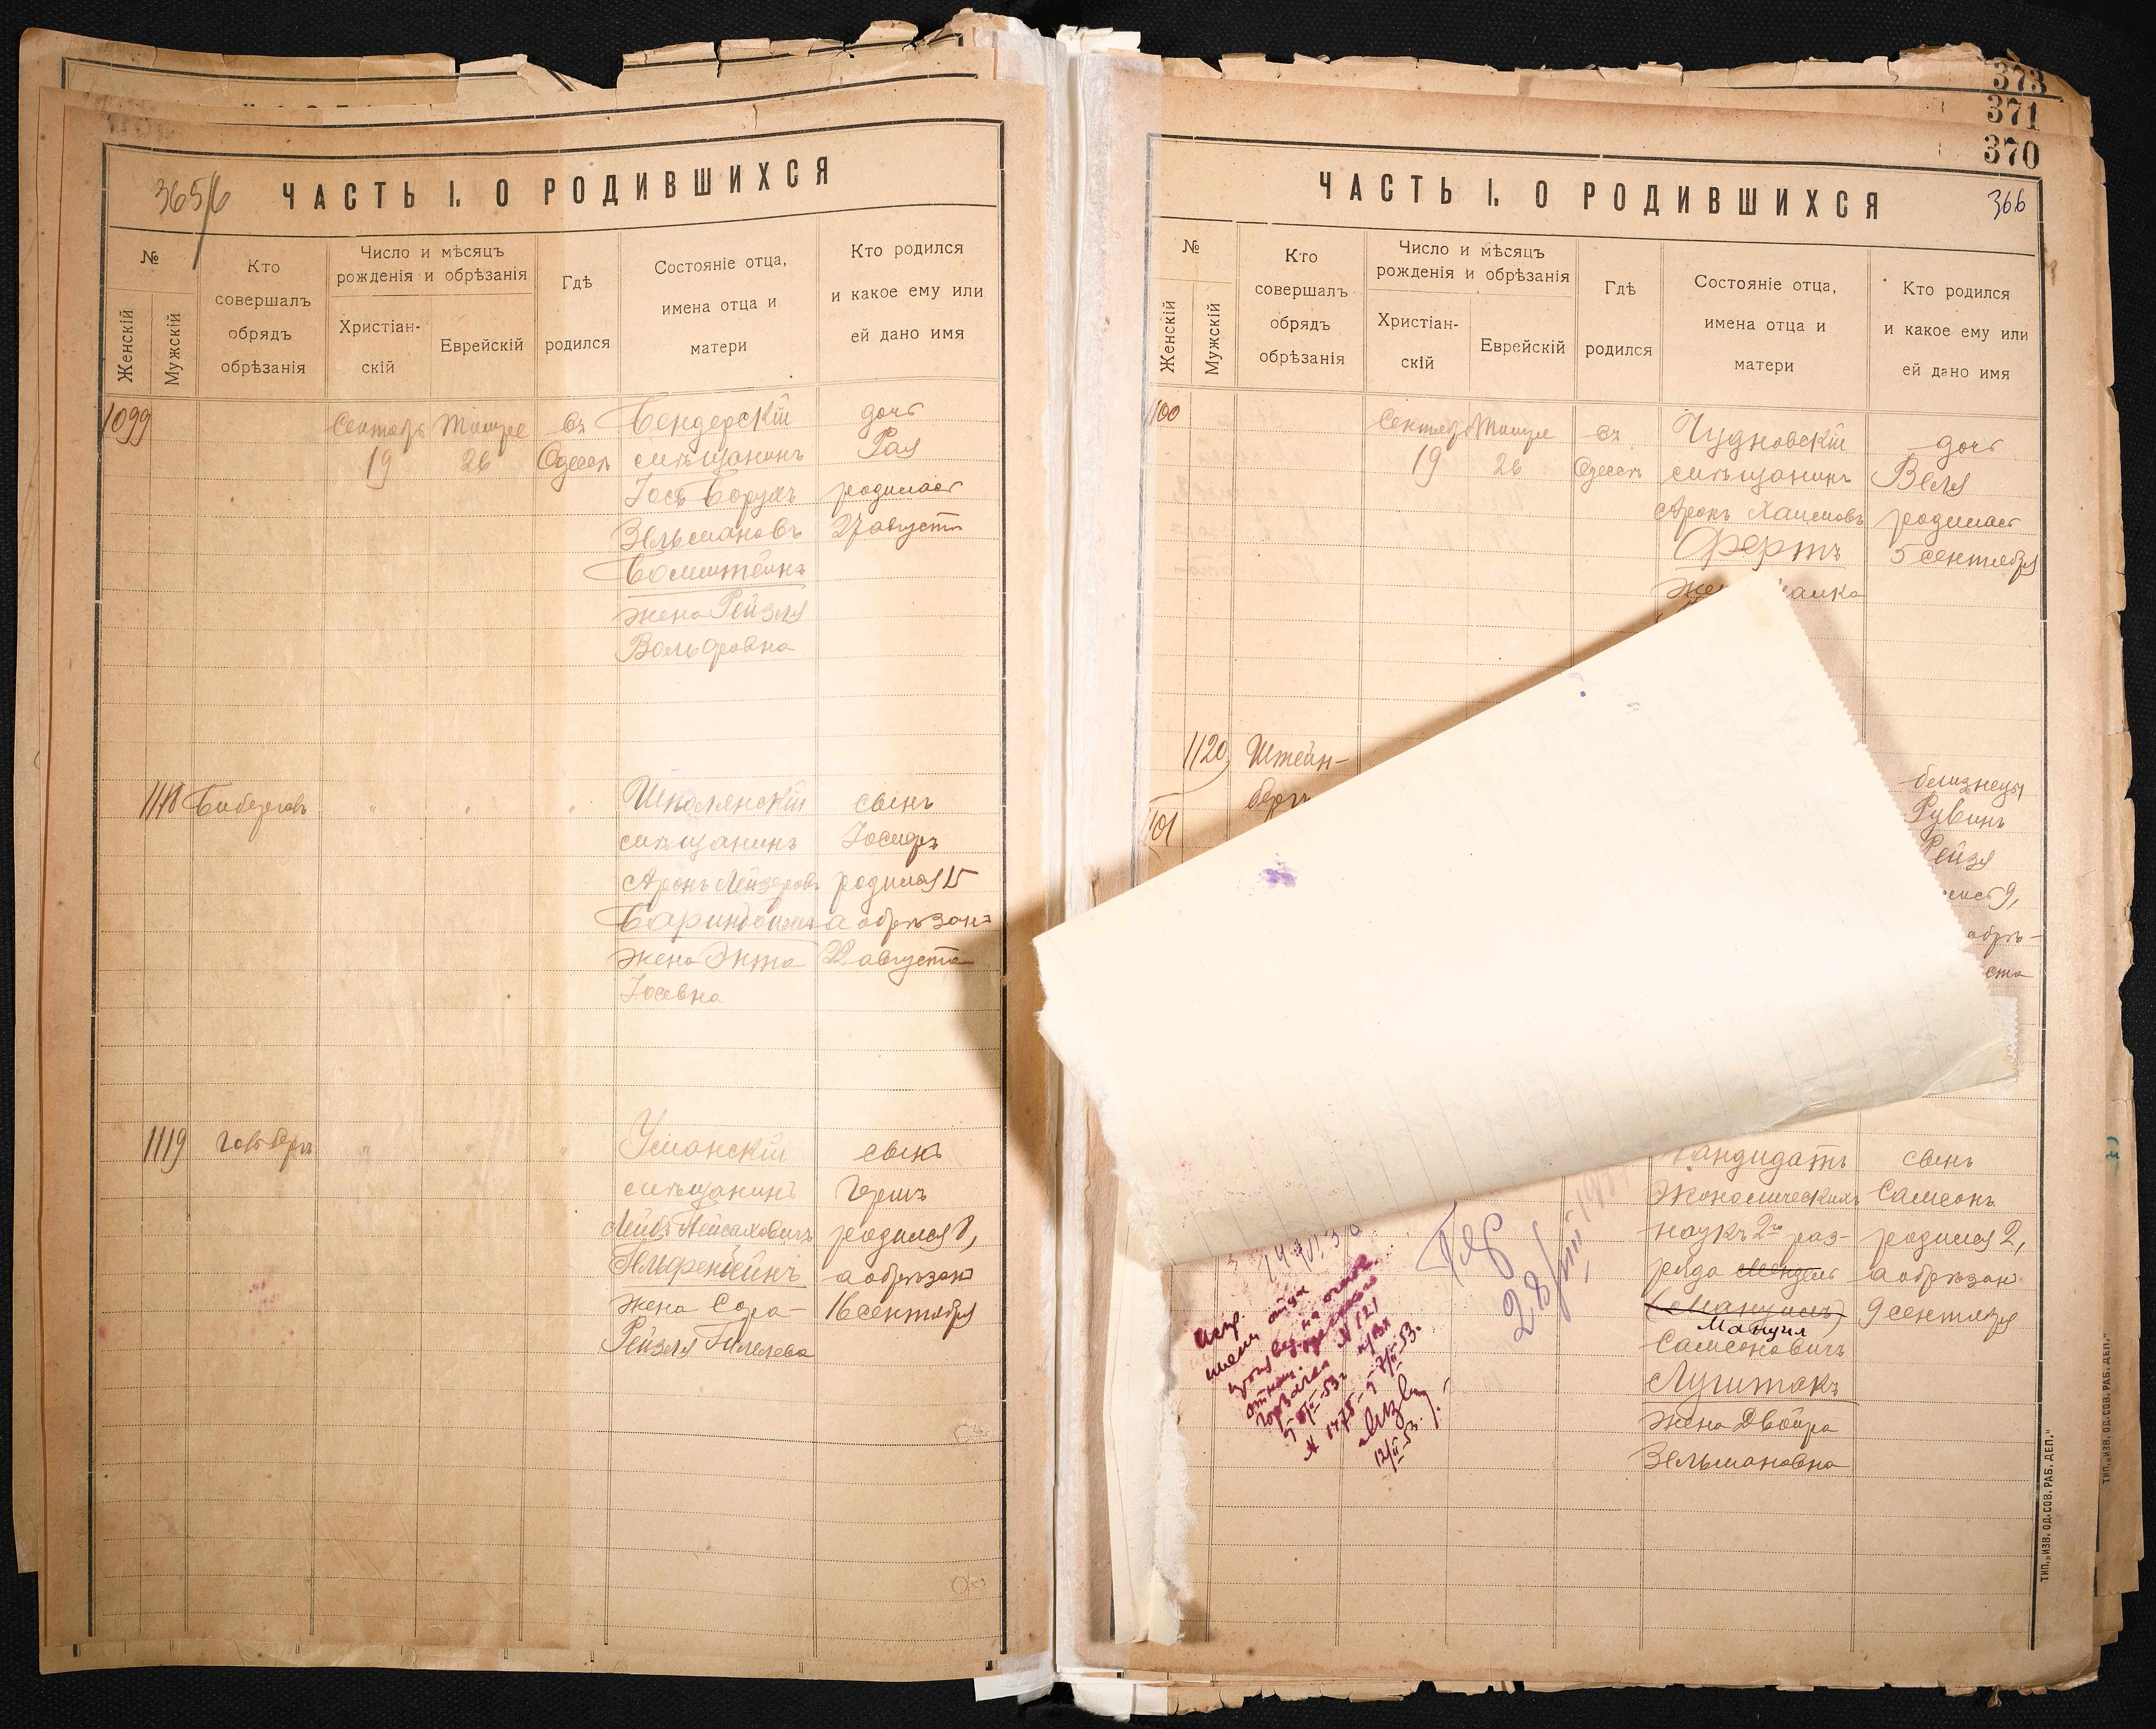 365/6
ЧАСТЬ I. О РОДИВШИХСЯ
№
Женскій
Мужскій
Кто
совершалъ
обрядъ
обрѣзанія
Число и мѣсяцъ
рожденія и обрѣзанія
Христіан-
скій
Еврейскій
Гдѣ
родился
Состояніе отца,
имена отца и
матери
Кто родился
и какое ему или
ей дано имя
1099
Сентябр
19
Тишре
26
въ
Одессѣ
Бендерскій
мѣщанинъ
Іось Борухъ
Зельмановъ
жена Рейзля
Вольфовна
дочь
Рая
родилась
27 августа
1118
"
"
"
Школянскій
мѣщанинъ
Аронъ Лейзеровъ
жена Энта
Іосевна
сынъ
Іосифъ
родился 15
а обрѣзанъ
22 августа
1119
"
"
"
Уманскій
мѣщанинъ
Лейбъ Пейсаховичъ
жена Сора-
Рейзля Гилелева
сынъ
Гершъ
родился 8,
а обрѣзанъ
16 сентября
373
371
370
366
ЧАСТЬ I. О РОДИВШИХСЯ
№
Женскій
Мужскій
Кто
совершалъ
обрядъ
обрѣзанія
Число и мѣсяцъ
рожденія и обрѣзанія
Христіан-
скій
Еврейскій
Гдѣ
родился
Состояніе отца,
имена отца и
матери
Кто родился
и какое ему или
ей дано имя
1100
Сентябр
19
Тишре
26
въ
Одессѣ
Чудновскій
мѣщанинъ
Аронъ Хаимовъ
Фертъ
дочь
Веля
родилась
5 сентября
1120
Штейн-
бергъ
1101
близнецы
Рувинъ
Рейзя
9,
обрѣ-
ста
Кандидатъ
экономическихъ
наукъ 2го раз-
ряда Мендель
(Мануиль)
Мануил
Самсоновичъ
Лушпакъ
жена Двойра
Зельмановна
сынъ
Самсонъ
родился 2,
а обрѣзанъ
9 сентября
28/III
Испр.
имени отца
12/II-53.
ТИП. „ИЗВ. ОД. СОВ. РАБ. ДЕП."
ТИП. „ИЗВ. ОД. СОВ. РАБ. ДЕП."